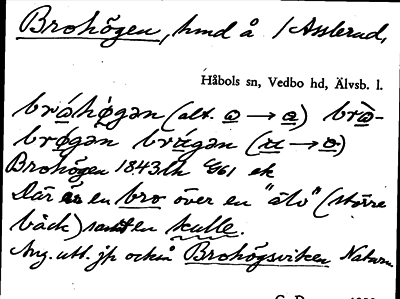 Brohögen, hmd å 1 Asslerud,
Håbols sn, Vedbo hd, Älvsb. l.
bråhøgən (alt. → ) brò-
brøgən brågən ( → )
Brohögen 1843 lk G61 ek
Där är en bro över en "älv" (större
bäck) samt en kulle.
Ang. utt. jfr också Brohögsviken Naturn